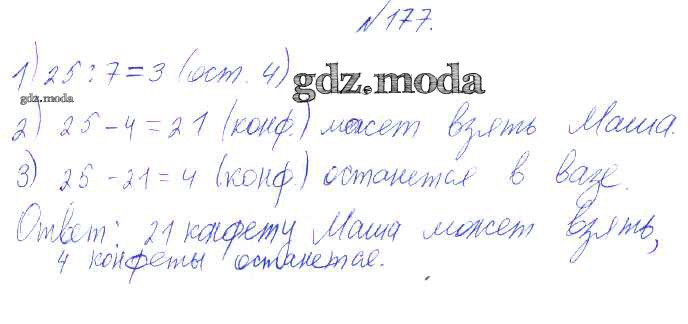 №177.
1) 25:7=3 (ост. 4)
gdz.moda
gdz.moda
2) 25-4=21 (конф.) может взять Маша.
3) 25-21=4 (конф.) останется в вазе.
Ответ: 21 конфету Маша может взять,
4 конфеты останется.